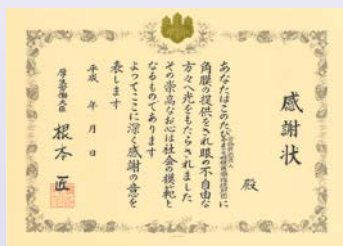 感謝状
殿
あなたはこのたび
に
角膜の提供をされ眼の不自由な
方々へ光をもたらされました
その崇高なお心は社会の模範と
なるものであります
よってここに深く感謝の意を
表します
平成 年 月 日
厚生労働大臣
根本 匠